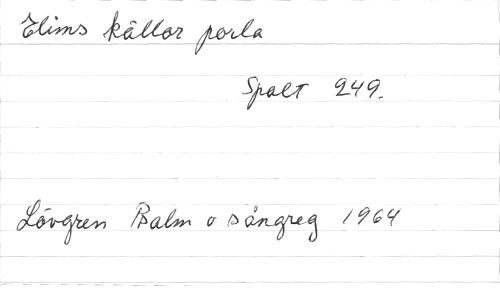 Elims källor porla
Spalt 249.
Lövgren Psalm o sångreg 1964